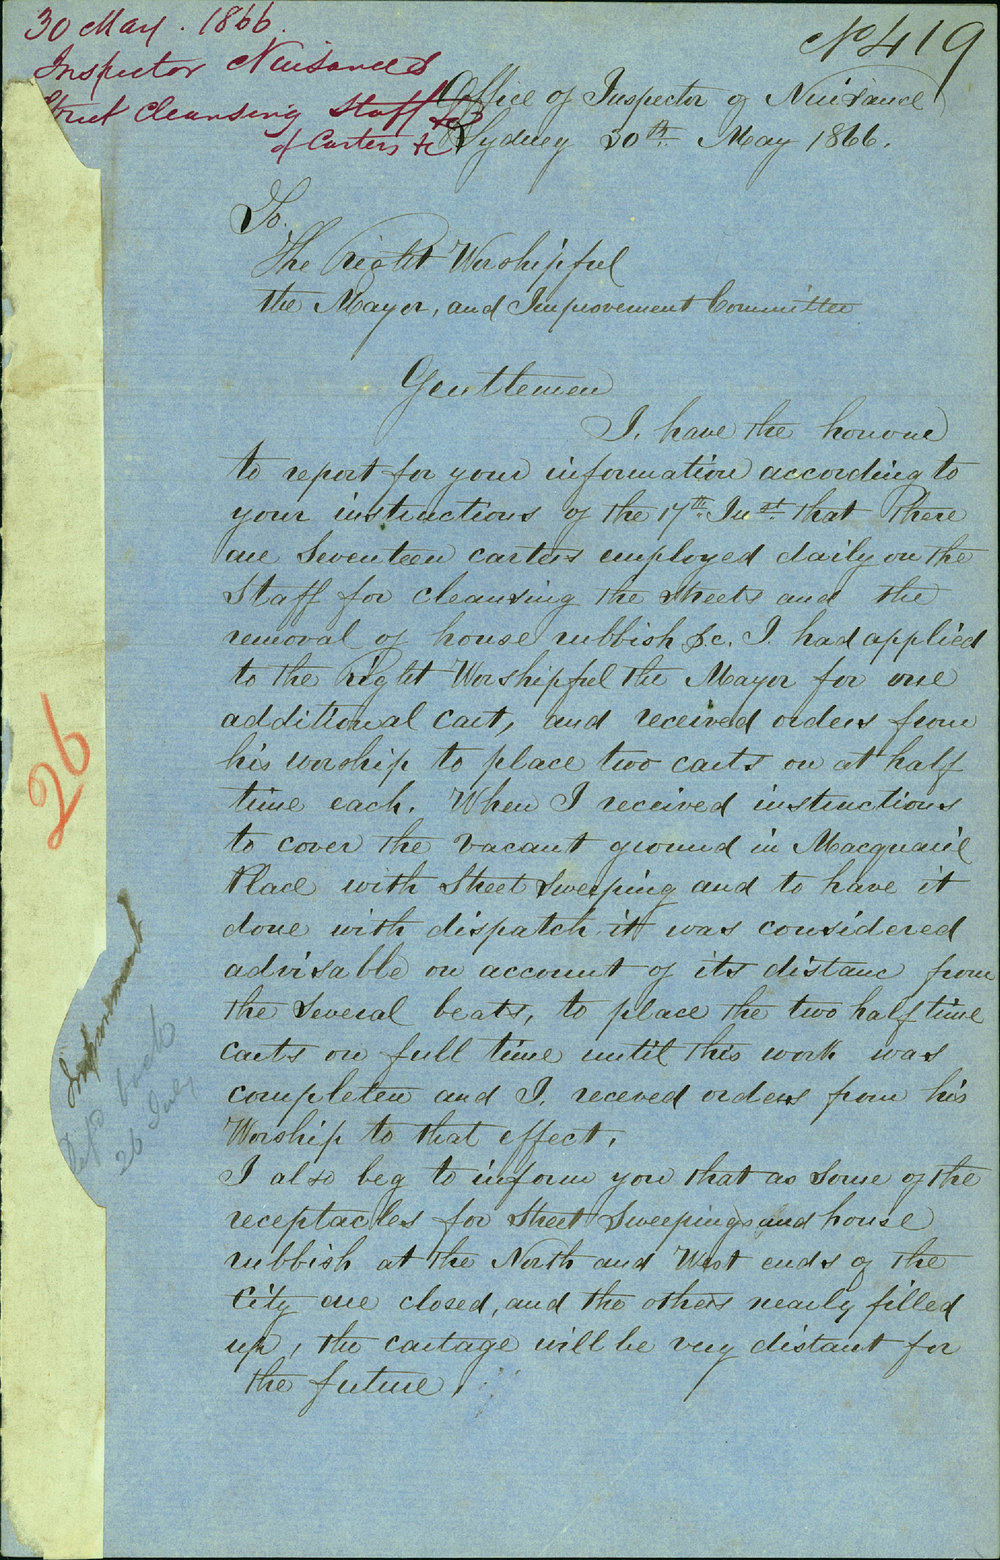 30 May. 1866.
Inspector Nuisances
Street Cleansing Staff
of Carters &c
No 419
Office of Inspector of Nuisance
Sydney 30th May 1866.
To.
The Right Worshipful
the Mayor, and Improvement Committee
Gentlemen
I, have the honour
to report for your information according to
your instructions of the 17th Inst that There
are Seventeen carters employed daily on the
Staff for cleansing the streets and the
removal of house rubbish &c. I had applied
to the Right Worshipful the Mayor for one
additional cart, and received orders from
his worship to place two carts on at half
time each. When I received instructions
to cover the vacant ground in Macquarie
Place with Street Sweeping and to have it
done with dispatch it was considered
advisable on account of its distanc from
the Several beats, to place the two half time
Carts on full time until this work was
completen and I, receved orders from his
Worship to that effect.
I also beg to inform you that as Some of the
receptacles for Street Sweepings and house
rubbish at the North and West ends of the
City are closed, and the others nearly filled
up, the cartage will be very distant for
the future.
26
Improvement
back
26 July